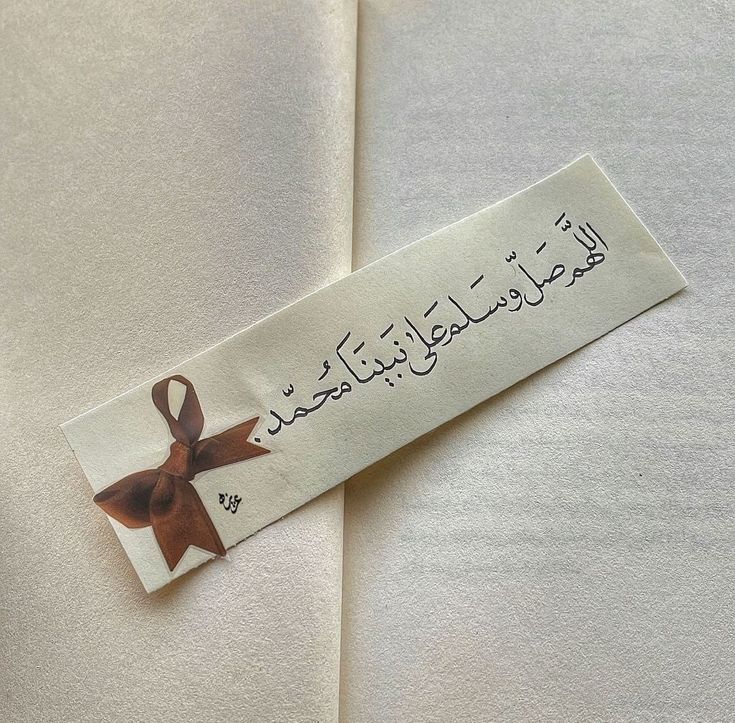 اللَّهم صَلِّ وّسَلم عَلىٰ نَبَينَا مُحمّد.